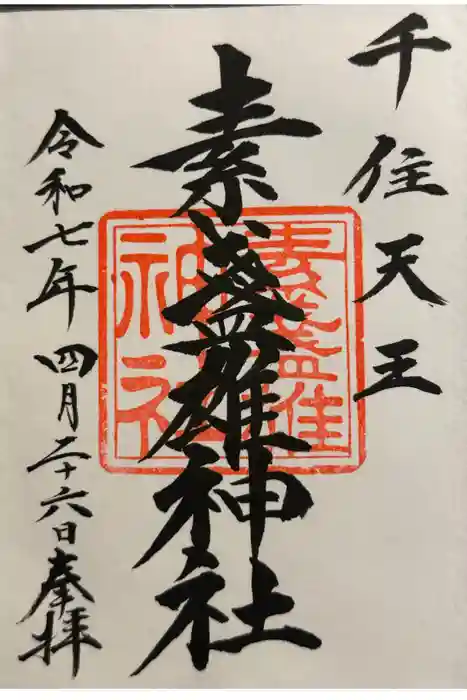 千住天王
素盞雄神社
令和七年四月二十六日奉拝
素盞雄
神社